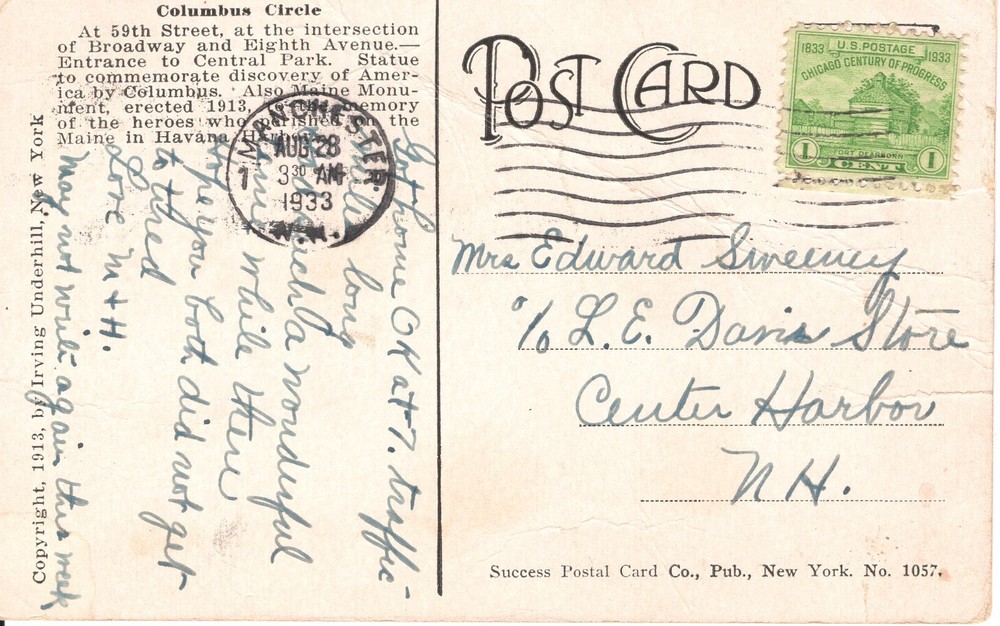 Columbus Circle
At 59th Street, at the intersection
of Broadway and Eighth Avenue.—
Entrance to Central Park. Statue
to commemorate discovery of Amer-
ica by Columbus. Also Maine Monu-
ment, erected 1913, to the memory
of the heroes who perished on the
Maine in Havana Harbor.
Copyright, 1913, by Irving Underhill, New York
AUG 28
3 30 AM
1933
N.H.
POST CARD
1833 U.S. POSTAGE 1933
CHICAGO CENTURY OF PROGRESS
FORT DEARBORN
1 CENT 1
Got home OK at 7. traffic -
long
such a wonderful
time while there
hope you both did not get
to tired
Love M + H.
May not write again this week
Mrs Edward Sweeney
% L. E. Davis Store
Center Harbor
N H.
Success Postal Card Co., Pub., New York. No. 1057.